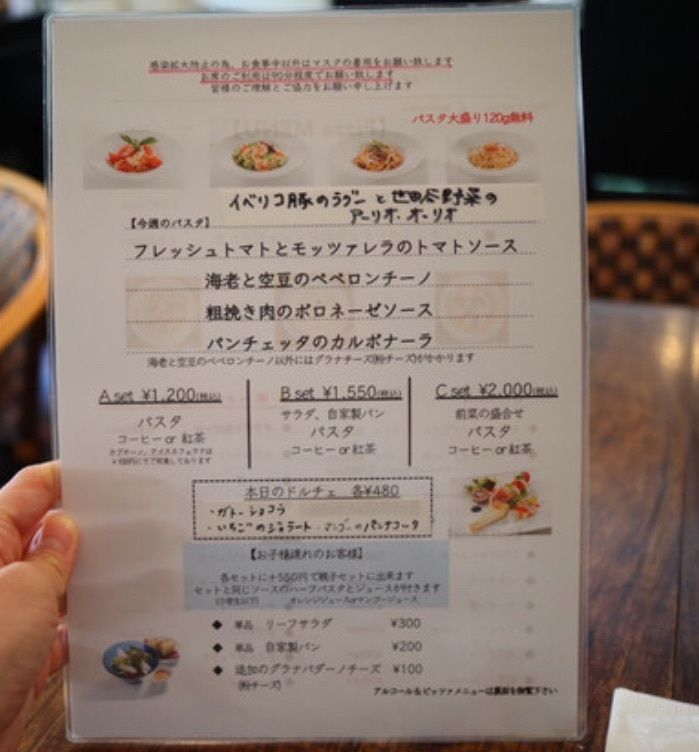 感染拡大防止の為、お食事中以外はマスクの着用をお願い致します
お席のご利用は90分程度でお願い致します
皆様のご理解とご協力をお願い申し上げます
パスタ大盛り120g無料
イベリコ豚のラグーと世田谷野菜の
アーリオ・オーリオ
【今週のパスタ】
フレッシュトマトとモッツァレラのトマトソース
海老と空豆のペペロンチーノ
粗挽き肉のボロネーゼソース
パンチェッタのカルボナーラ
海老と空豆のペペロンチーノ以外にはグラナチーズ(粉チーズ)がかかります
A set ¥1,200(税込)
パスタ
コーヒー or 紅茶
カプチーノ、アイスカフェラテは
+100円にてご用意しております
B set ¥1,550(税込)
サラダ、自家製パン
パスタ
コーヒー or 紅茶
C set ¥2,000(税込)
前菜の盛合せ
パスタ
コーヒー or 紅茶
本日のドルチェ 各¥480
・ガトーショコラ
・いちごのジェラート ・マンゴーのパンナコッタ
【お子様連れのお客様】
各セットに+550円で親子セットに出来ます
セットと同じソースのハーフパスタとジュースが付きます
(小学生以下) オレンジジュースorマンゴージュース
◆ 単品 リーフサラダ ¥300
◆ 単品 自家製パン ¥200
◆ 追加のグラナパダーノチーズ ¥100
(粉チーズ)
アルコール&ピッツァメニューは裏面を御覧下さい